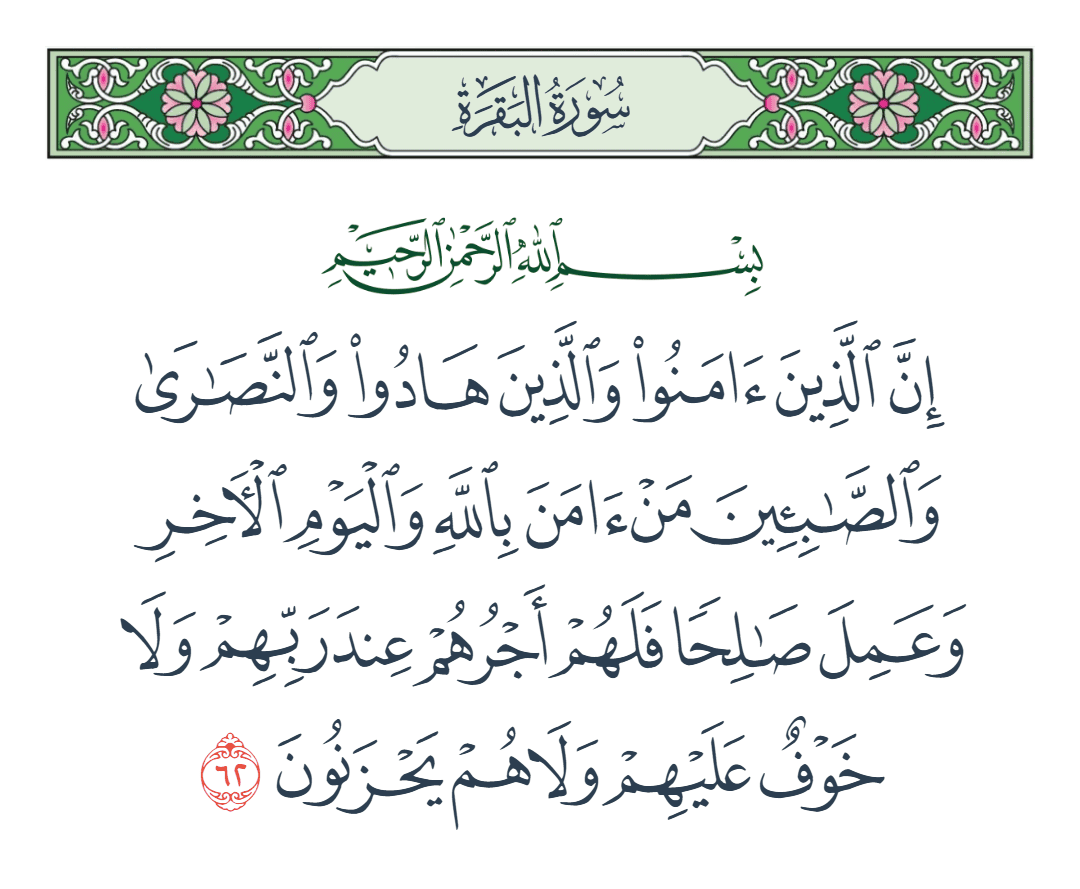 سُورَةُ البَقَرَةِ
بِسْمِ ٱللَّهِ ٱلرَّحْمَٰنِ ٱلرَّحِيمِ
إِنَّ ٱلَّذِينَ ءَامَنُوا۟ وَٱلَّذِينَ هَادُوا۟ وَٱلنَّصَـٰرَىٰ
وَٱلصَّـٰبِـِٔينَ مَنْ ءَامَنَ بِٱللَّهِ وَٱلْيَوْمِ ٱلْـَٔاخِرِ
وَعَمِلَ صَـٰلِحًا فَلَهُمْ أَجْرُهُمْ عِندَ رَبِّهِمْ وَلَا
خَوْفٌ عَلَيْهِمْ وَلَا هُمْ يَحْزَنُونَ ٦٢